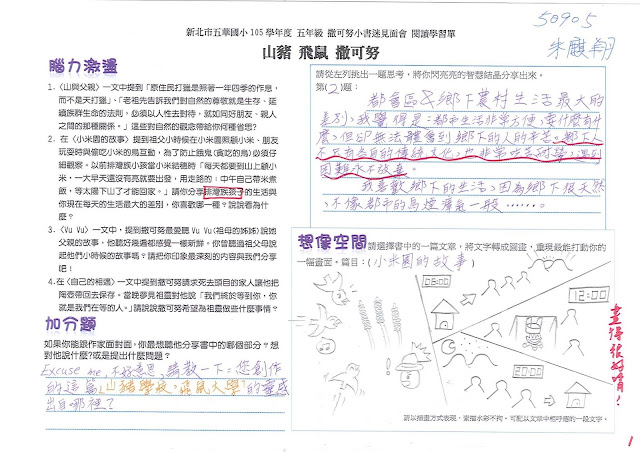 新北市五華國小105學年度 五年級 撒可努小書迷見面會 閱讀學習單
山豬 飛鼠 撒可努
50905
朱麒翔
腦力激盪
1.〈山與父親〉一文中提到「原住民打獵是照著一年四季的作息，
而不是天打獵」、「老祖先告訴我們對自然的尊敬就是生存、延
續族群生命的法則，必須以人性去對待，就如同好朋友、親人
之間的那種關係。」這些對自然的觀念帶給你何種省思?
2.〈小米園的故事〉一文中提到撒可努小時候在小米園照顧小米、朋友
玩耍時與偷吃小米的鳥互動，為了防止餓鬼(貪吃的鳥)必須仔
細觀察。以前排灣族小孩當小米結穗時「每天都要到山上顧小
米，一大早天還沒有亮就要出發，用走路的；中午自己帶米煮
飯，等太陽下山了才能回家。」請你分享排灣族孩子的生活與
你現在每天的生活最大的差別，你喜歡哪一種？說說看為什
麼？
3.〈Vu Vu〉一文中，提到撒可努最愛聽Vu Vu(祖母的姊姊)說她
父親的故事，他聽好幾遍都感覺一樣新鮮。你曾聽過祖父母說
起他們小時候的故事嗎？請把你印象最深刻的內容與我們分享
吧！
4.在〈自己的相遇〉一文中提到撒可努請求死去頭目的家人讓他把
陶壺帶回去保存。當晚夢見祖靈對他說「我們終於等到你，你
就是我們在等的人。」請說說撒可努希望為祖靈做些什麼事情？
加分題
如果你能跟作家面對面，你最想聽他分享書中的哪個部分？想
對他說什麼?或是提出什麼問題？
Excuse me,不好意思,請教一下:您創作
的這篇「山豬學校,飛鼠大學」的靈感
出自哪裡?
請從左列挑出一題思考，將你閃亮亮的智慧結晶分享出來。
第(2)題：
都會區&鄉下農村生活最大的
差別,我覺得是:都市生活非常方便,要什麼有
什麼,但卻無法體會到鄉下的人的辛苦。鄉下人
困難永不放棄。
我喜歡鄉下的生活,因為鄉下很天然
,不像都市的烏煙瘴氣一般……。
想像空間 請選擇書中的一篇文章，將文字轉成圖畫，重現最能打動你的
一幅畫面。篇目：(小米園的故事)
08:00
12:00
18:00
畫得很好唷!
請以插畫方式表現，素描水彩不拘。可配以文章中相呼應的一段文字。